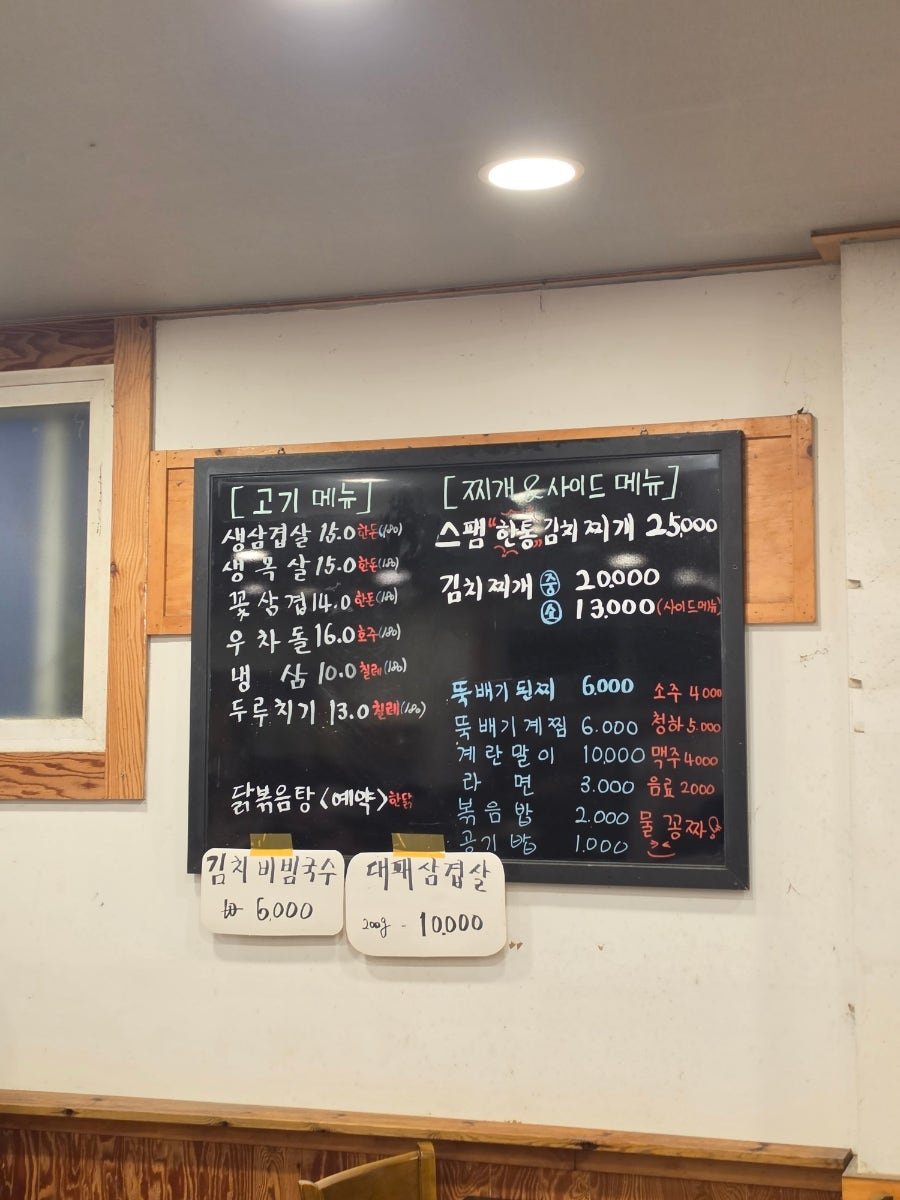 [고기 메뉴]
생삼겹살 15.0 한돈(180)
생목살 15.0 한돈(180)
꽃삼겹 14.0 한돈(180)
우차돌 16.0 호주(180)
냉삼 10.0 칠레(180)
두루치기 13.0 칠레(180)
닭볶음탕<예약> 한닭
[찌개&사이드 메뉴]
스팸 "한통" 김치찌개 25,000
김치찌개 중 20,000
소 13,000 (사이드메뉴)
뚝배기 된찌 6,000
뚝배기계찜 6.000
계란말이 10,000
라면 3.000
볶음밥 2.000
공기밥 1.000
소주 4000
청하 5.000
맥주 4000
음료 2000
물 꽁짜
김치비빔국수
6,000
대패삼겹살
200g - 10,000